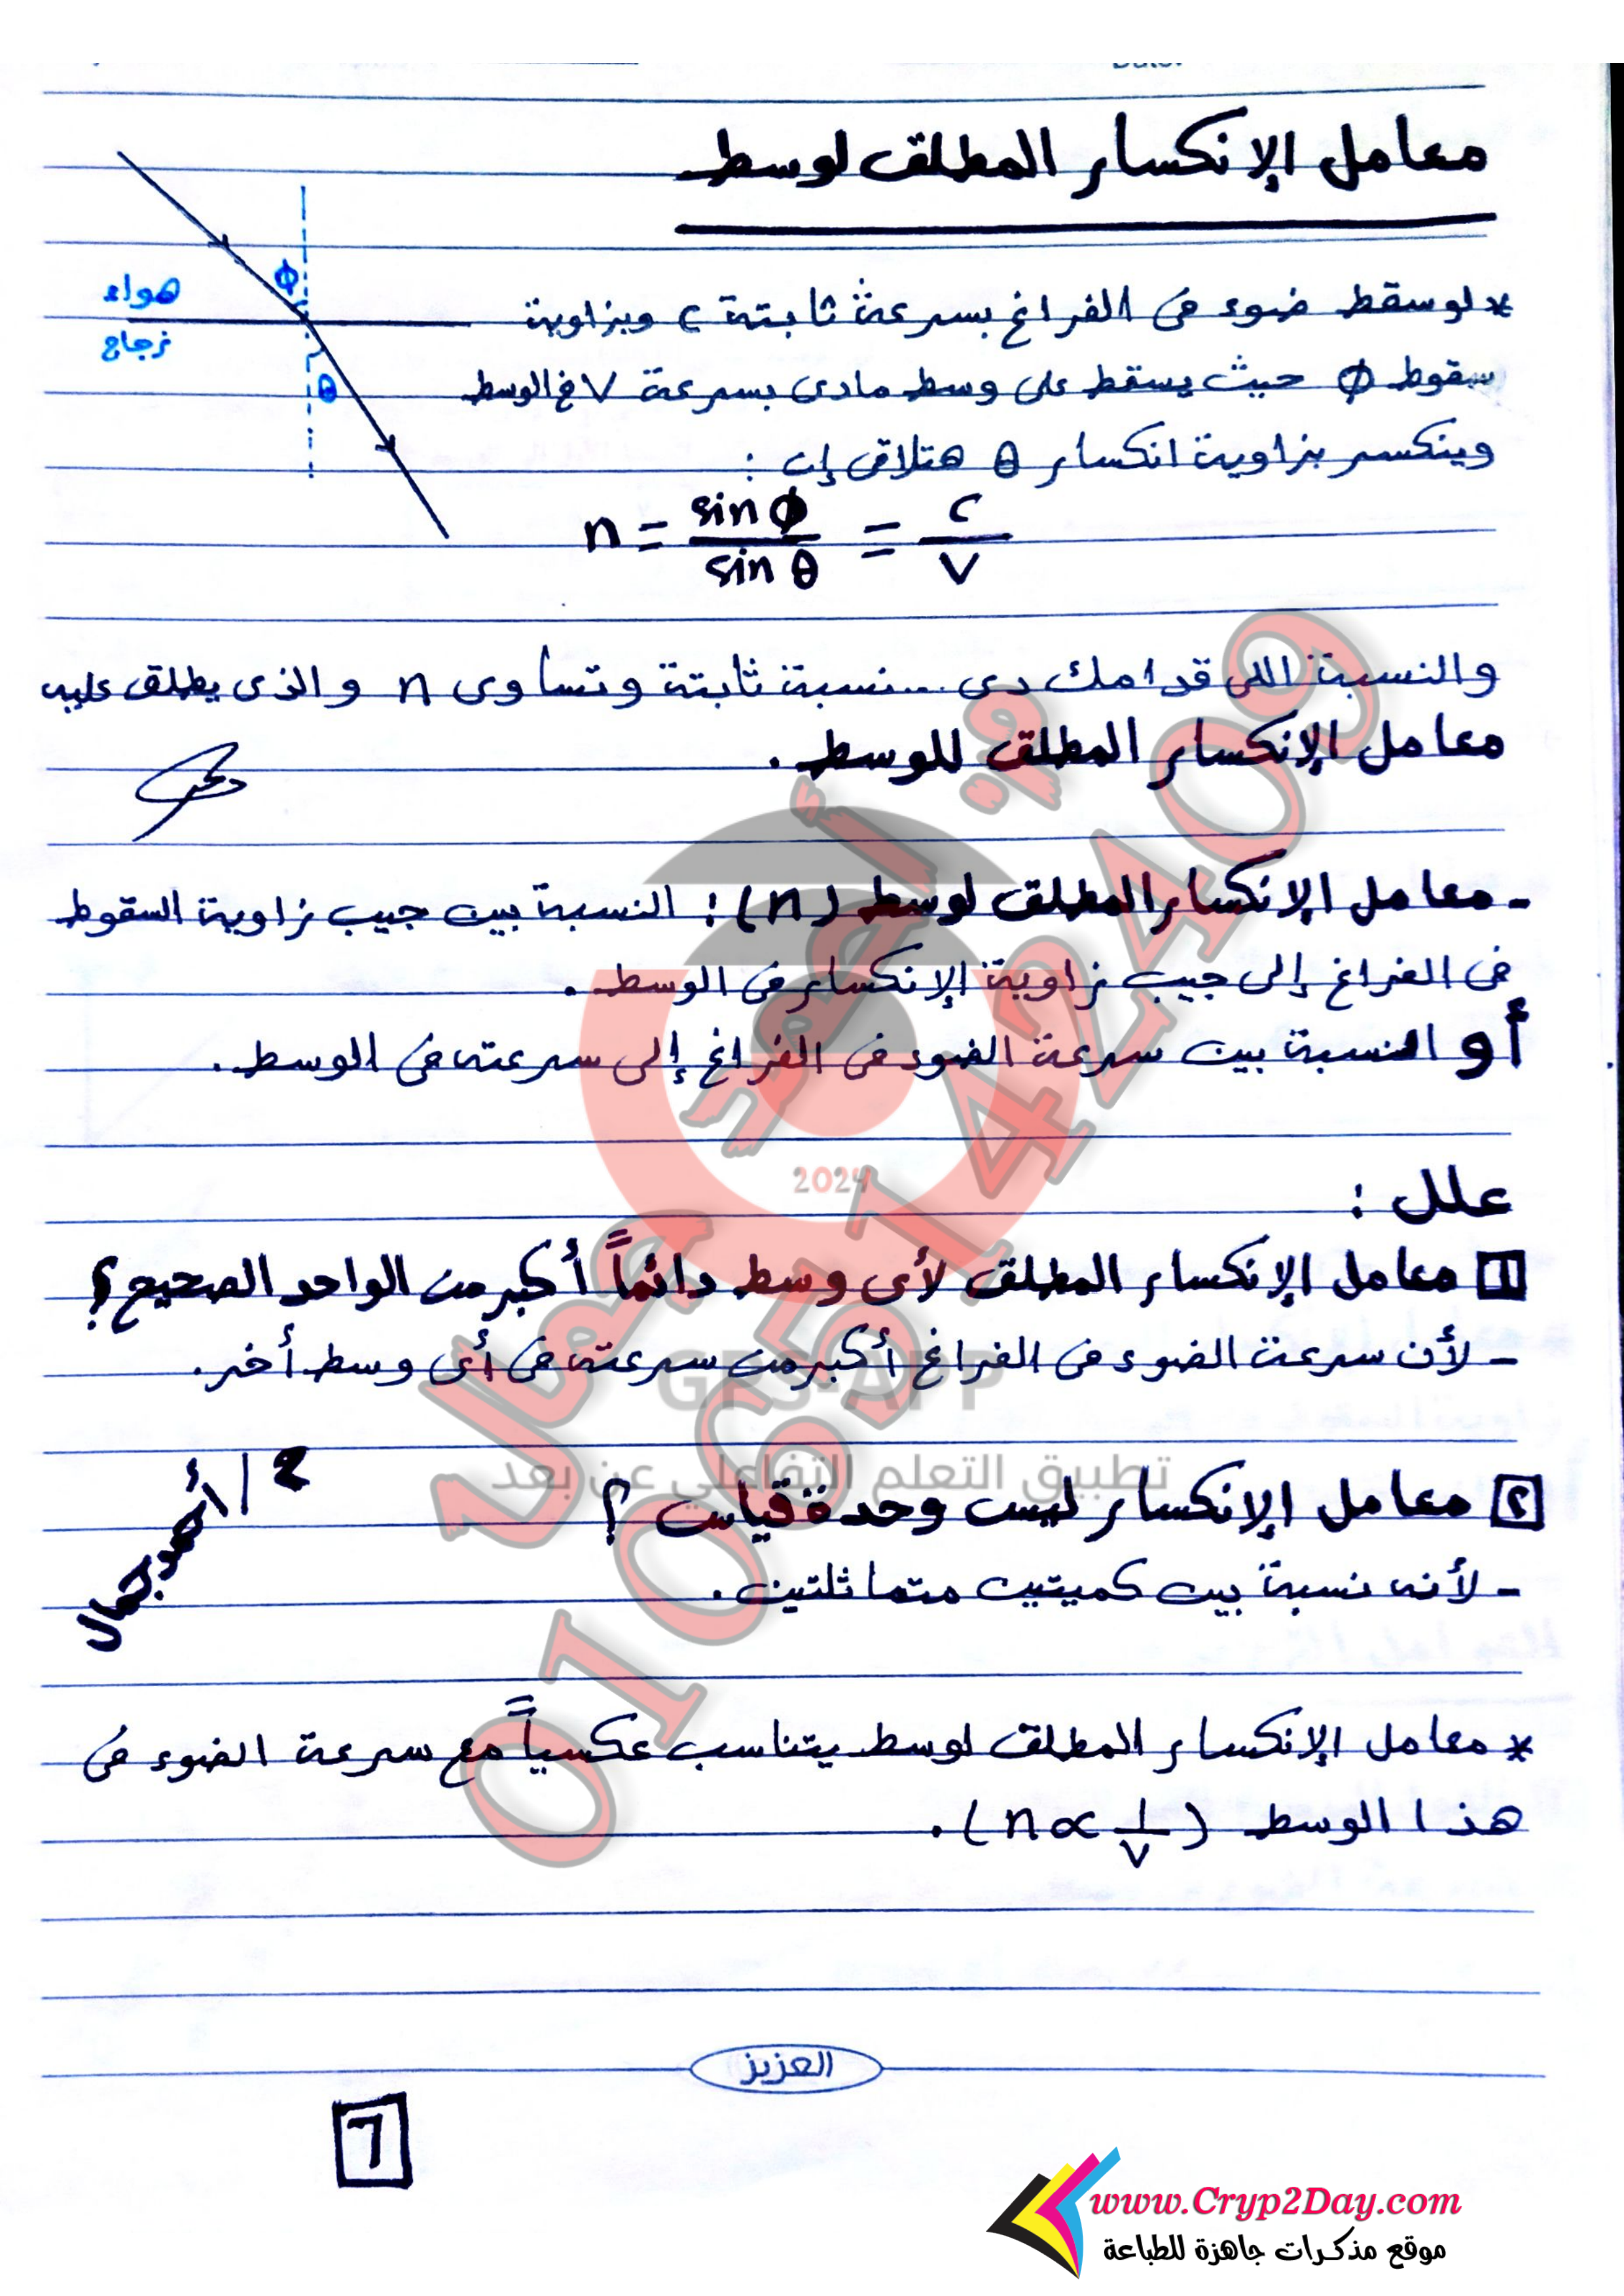 معامل الإنكسار المطلق لوسط
* لو سقط ضوء فى الفراغ بسرعة ثابتة c وبزاوية
سقوط ϕ حيث يسقط على وسط مادى بسرعة V فى الوسط
وينكسر بزاوية انكسار θ هتلاقى إن :
هواء
زجاج
ϕ
θ
n = sin ϕ / sin θ = c / V
والنسبة اللى قدامك دى... نسبة ثابتة وتساوى n والذى يطلق عليه
معامل الإنكسار المطلق للوسط .
- معامل الإنكسار المطلق لوسط (n) : النسبة بين جيب زاوية السقوط
فى الفراغ إلى جيب زاوية الإنكسار فى الوسط .
أو النسبة بين سرعة الضوء فى الفراغ إلى سرعته فى الوسط .
علل :
1 معامل الإنكسار المطلق لأى وسط دائماً أكبر من الواحد الصحيح ؟
- لأن سرعة الضوء فى الفراغ أكبر من سرعته فى أى وسط أخر .
2 معامل الإنكسار ليس وحدة قياس ؟
- لأنه نسبة بين كميتين متماثلتين .
م / أحمد جمال
* معامل الإنكسار المطلق لوسط يتناسب عكسياً مع سرعة الضوء فى
هذا الوسط (n ∝ 1/V) .
العزيز
7
2024
GPS-APP
تطبيق التعلم التفاعلي عن بعد
أحمد جمال
01065142409
www.Cryp2Day.com
موقع مذكرات جاهزة للطباعة